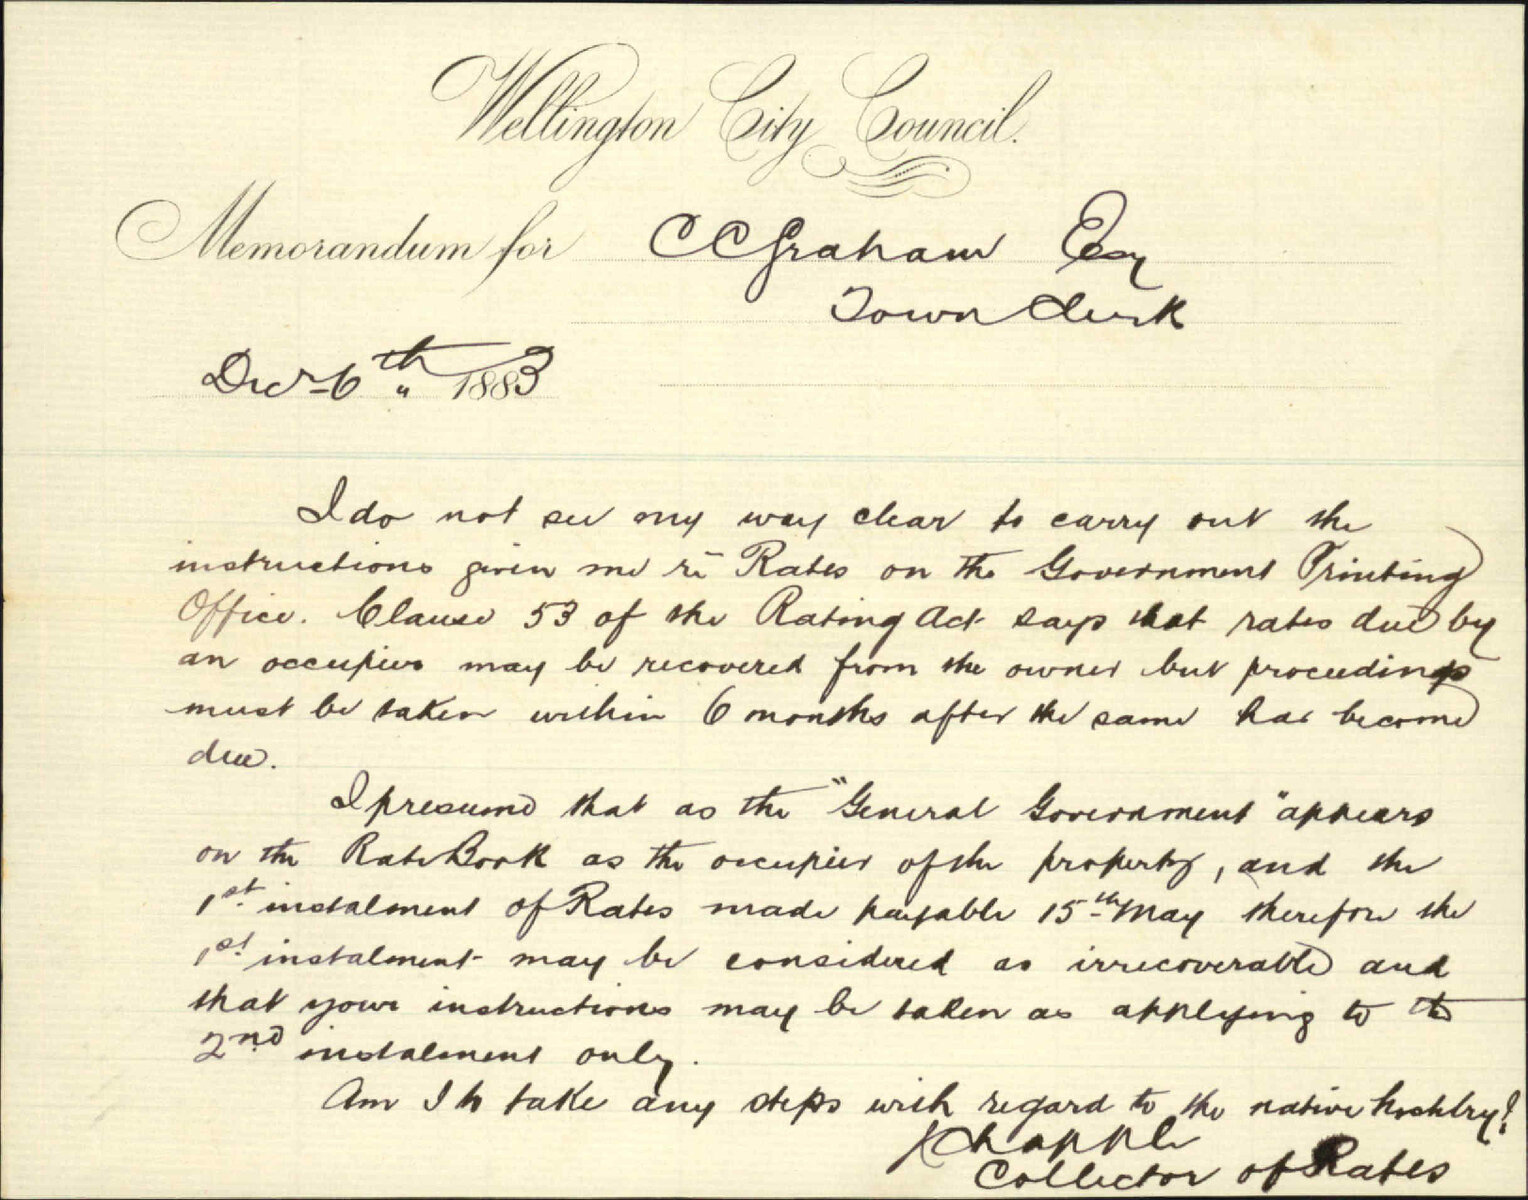 Wellington City Council.
Memorandum for C C Graham Esq
Town Clerk
Decr 6th 1883
I do not see my way clear to carry out the
instructions given me re Rates on the Government Printing
Office. Clause 53 of the Rating Act says that rates due by
an occupier may be recovered from the owner but proceedings
must be taken within 6 months after the same has become
due.
I presume that as the "General Government" appears
on the Rate Book as the occupier of the property, and the
1st instalment of Rates made payable 15th May therefore the
1st instalment may be considered as irrecoverable and
that your instructions may be taken as applying to the
2nd instalment only.
Am I to take any steps with regard to the native hostelry?
Chapple
Collector of Rates